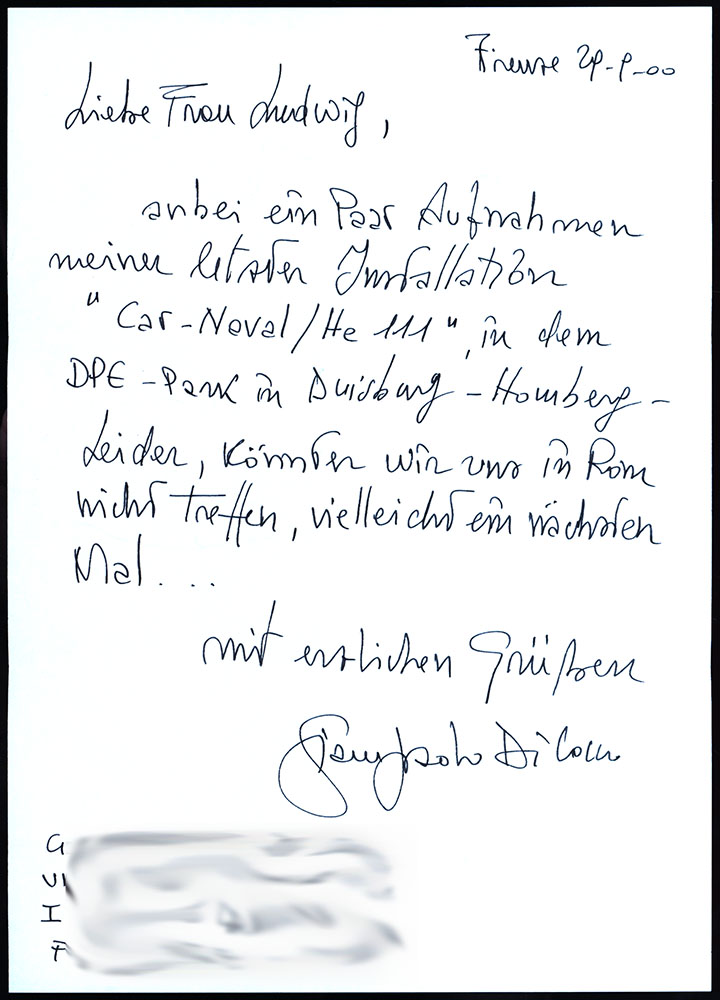 Firenze 29-9-00
Liebe Frau Ludwig,
anbei ein Paar Aufnahmen
meiner letzten Installation
"Car-Naval/He 111", in dem
DPE-Park in Duisburg-Homberg-
Leider, könnten wir uns in Rom
nicht treffen, vielleicht ein nächsten
Mal....
mit erzlichen Grüßen
Giampaolo Di Cocco
G
VI
I
F